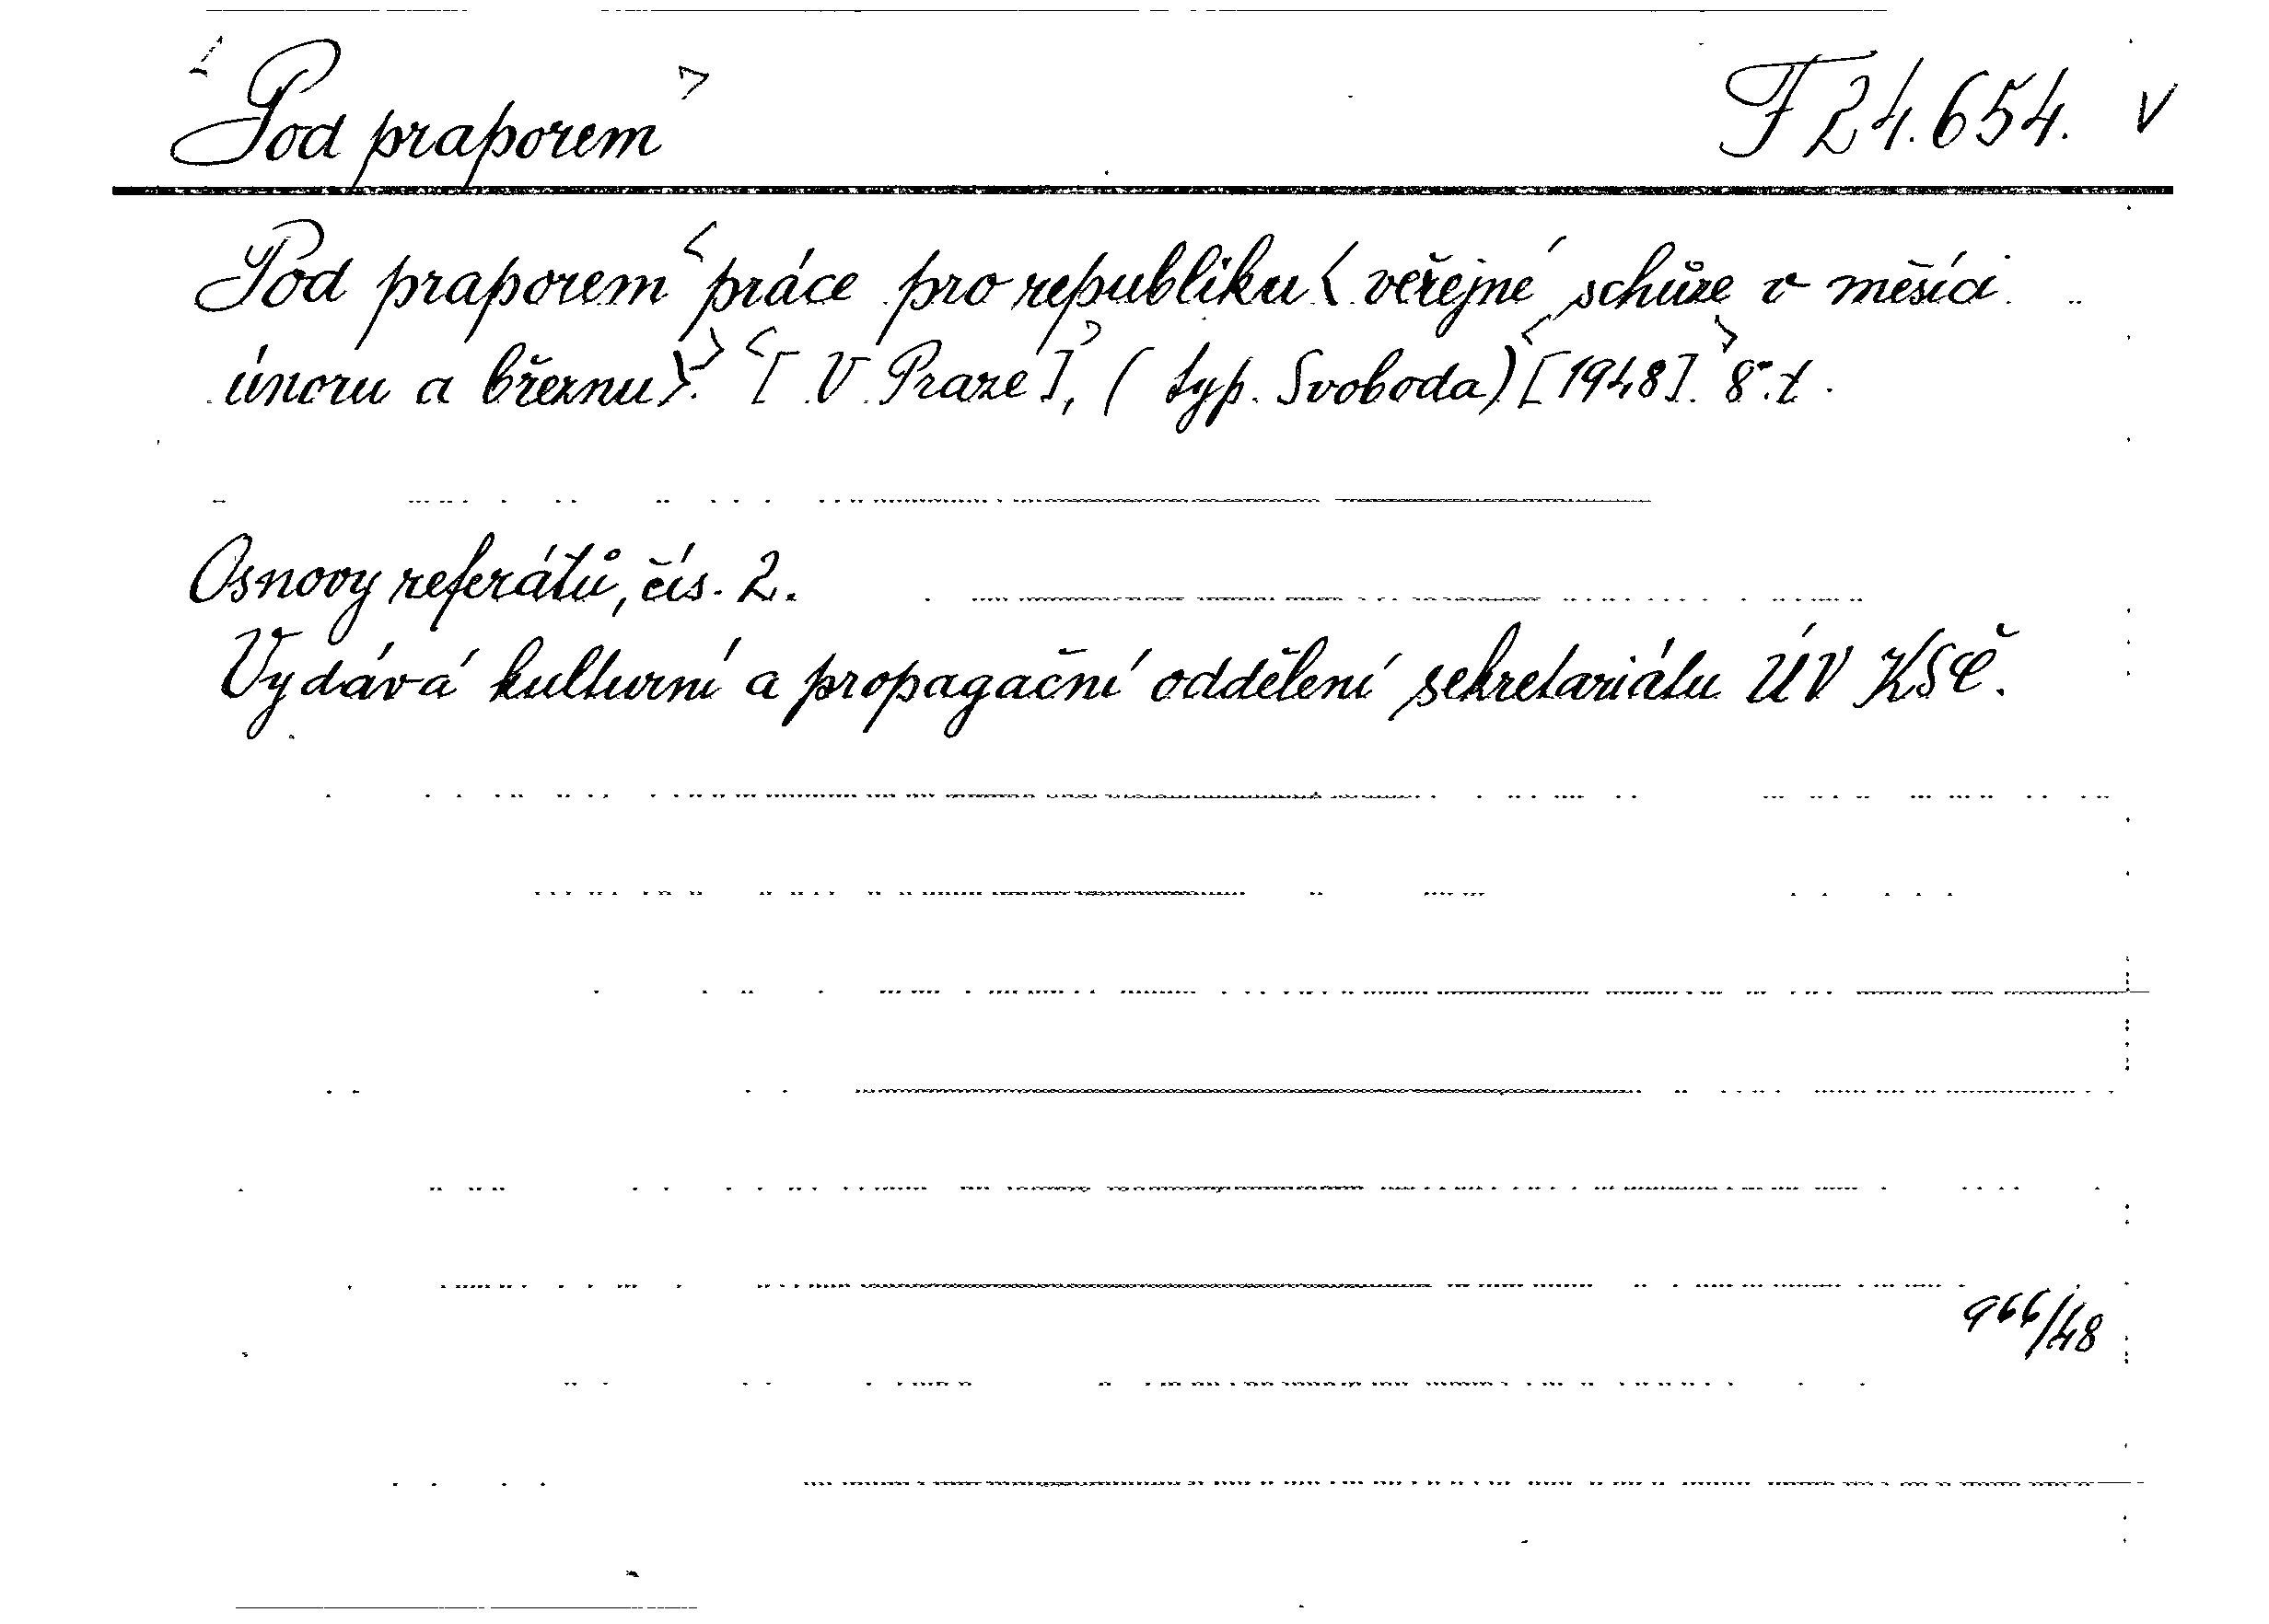 <Pod praporem> F 24.654. V
Pod praporem <práce pro republiku <veřejné schůze v měsíci
únoru a březnu>.> <[V Praze],> (typ. Svoboda) <[1948].> 8°. t.
Osnovy referátů, čís. 2.
Vydává kulturní a propagační oddělení sekretariátu ÚV KSČ.
966/48